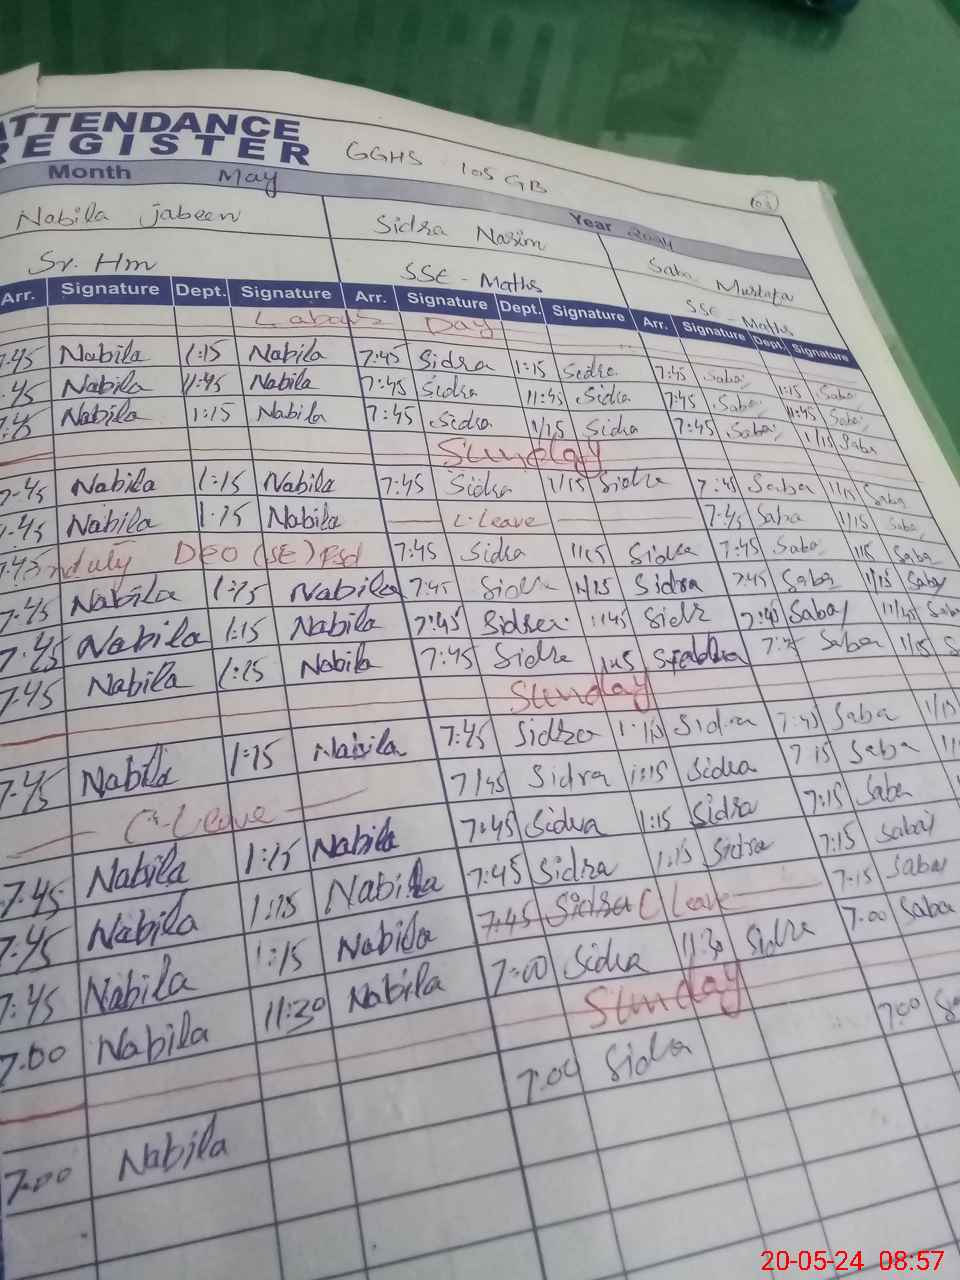 ATTENDANCE
REGISTER GGHS 105 GB
103
Month May Year 2024
Nabila Jabeen Sidra Nasim Saba Mustafa
Sr. Hm SSE - Maths SSE - Maths
Arr. Signature Dept. Signature Arr. Signature Dept. Signature Arr. Signature Dept. Signature
Labour Day
7:45 Nabila 1:15 Nabila 7:45 Sidra 1:15 Sidra 7:45 Saba 1:15 Saba
:45 Nabila 11:45 Nabila 7:45 Sidra 11:45 Sidra 7:45 Saba 11:45 Saba
7:45 Nabila 1:15 Nabila 7:45 Sidra 1:15 Sidra 7:45 Saba 1:15 Saba
Sunday
7:45 Nabila 1:15 Nabila 7:45 Sidra 1:15 Sidra 7:45 Saba 1:15 Saba
7:45 Nabila 1:15 Nabila C. Leave 7:45 Saba 1:15 Saba
7:45 duty DEO (SE) Fsd 7:45 Sidra 1:15 Sidra 7:45 Saba 1:15 Saba
7:45 Nabila 1:15 Nabila 7:45 Sidra 1:15 Sidra 7:45 Saba 1:15 Saba
7:45 Nabila 1:15 Nabila 7:45 Sidra 11:45 Sidra 7:45 Saba 11:45 Saba
7:45 Nabila 1:15 Nabila 7:45 Sidra Saba 1:15 S
Sunday
7:45 Nabila 1:15 Nabila 7:45 Sidra 1:15 Sidra 7:45 Saba 1:15
C. Leave 7:45 Sidra 1:15 Sidra 7:15 Saba
7:45 Nabila 1:15 Nabila 7:45 Sidra 1:15 Sidra 7:15 Saba
7:45 Nabila 1:15 Nabila 7:45 Sidra 1:15 Sidra 7:15 Saba
7:45 Nabila 1:15 Nabila 7:45 Sidra C Leave 7:15 Saba
7:00 Nabila 11:30 Nabila 7:00 Sidra 11:30 Sidra 7:00 Saba
Sunday
7:00 Nabila 7:00 Sidra 7:00 Sa
20-05-24 08:57